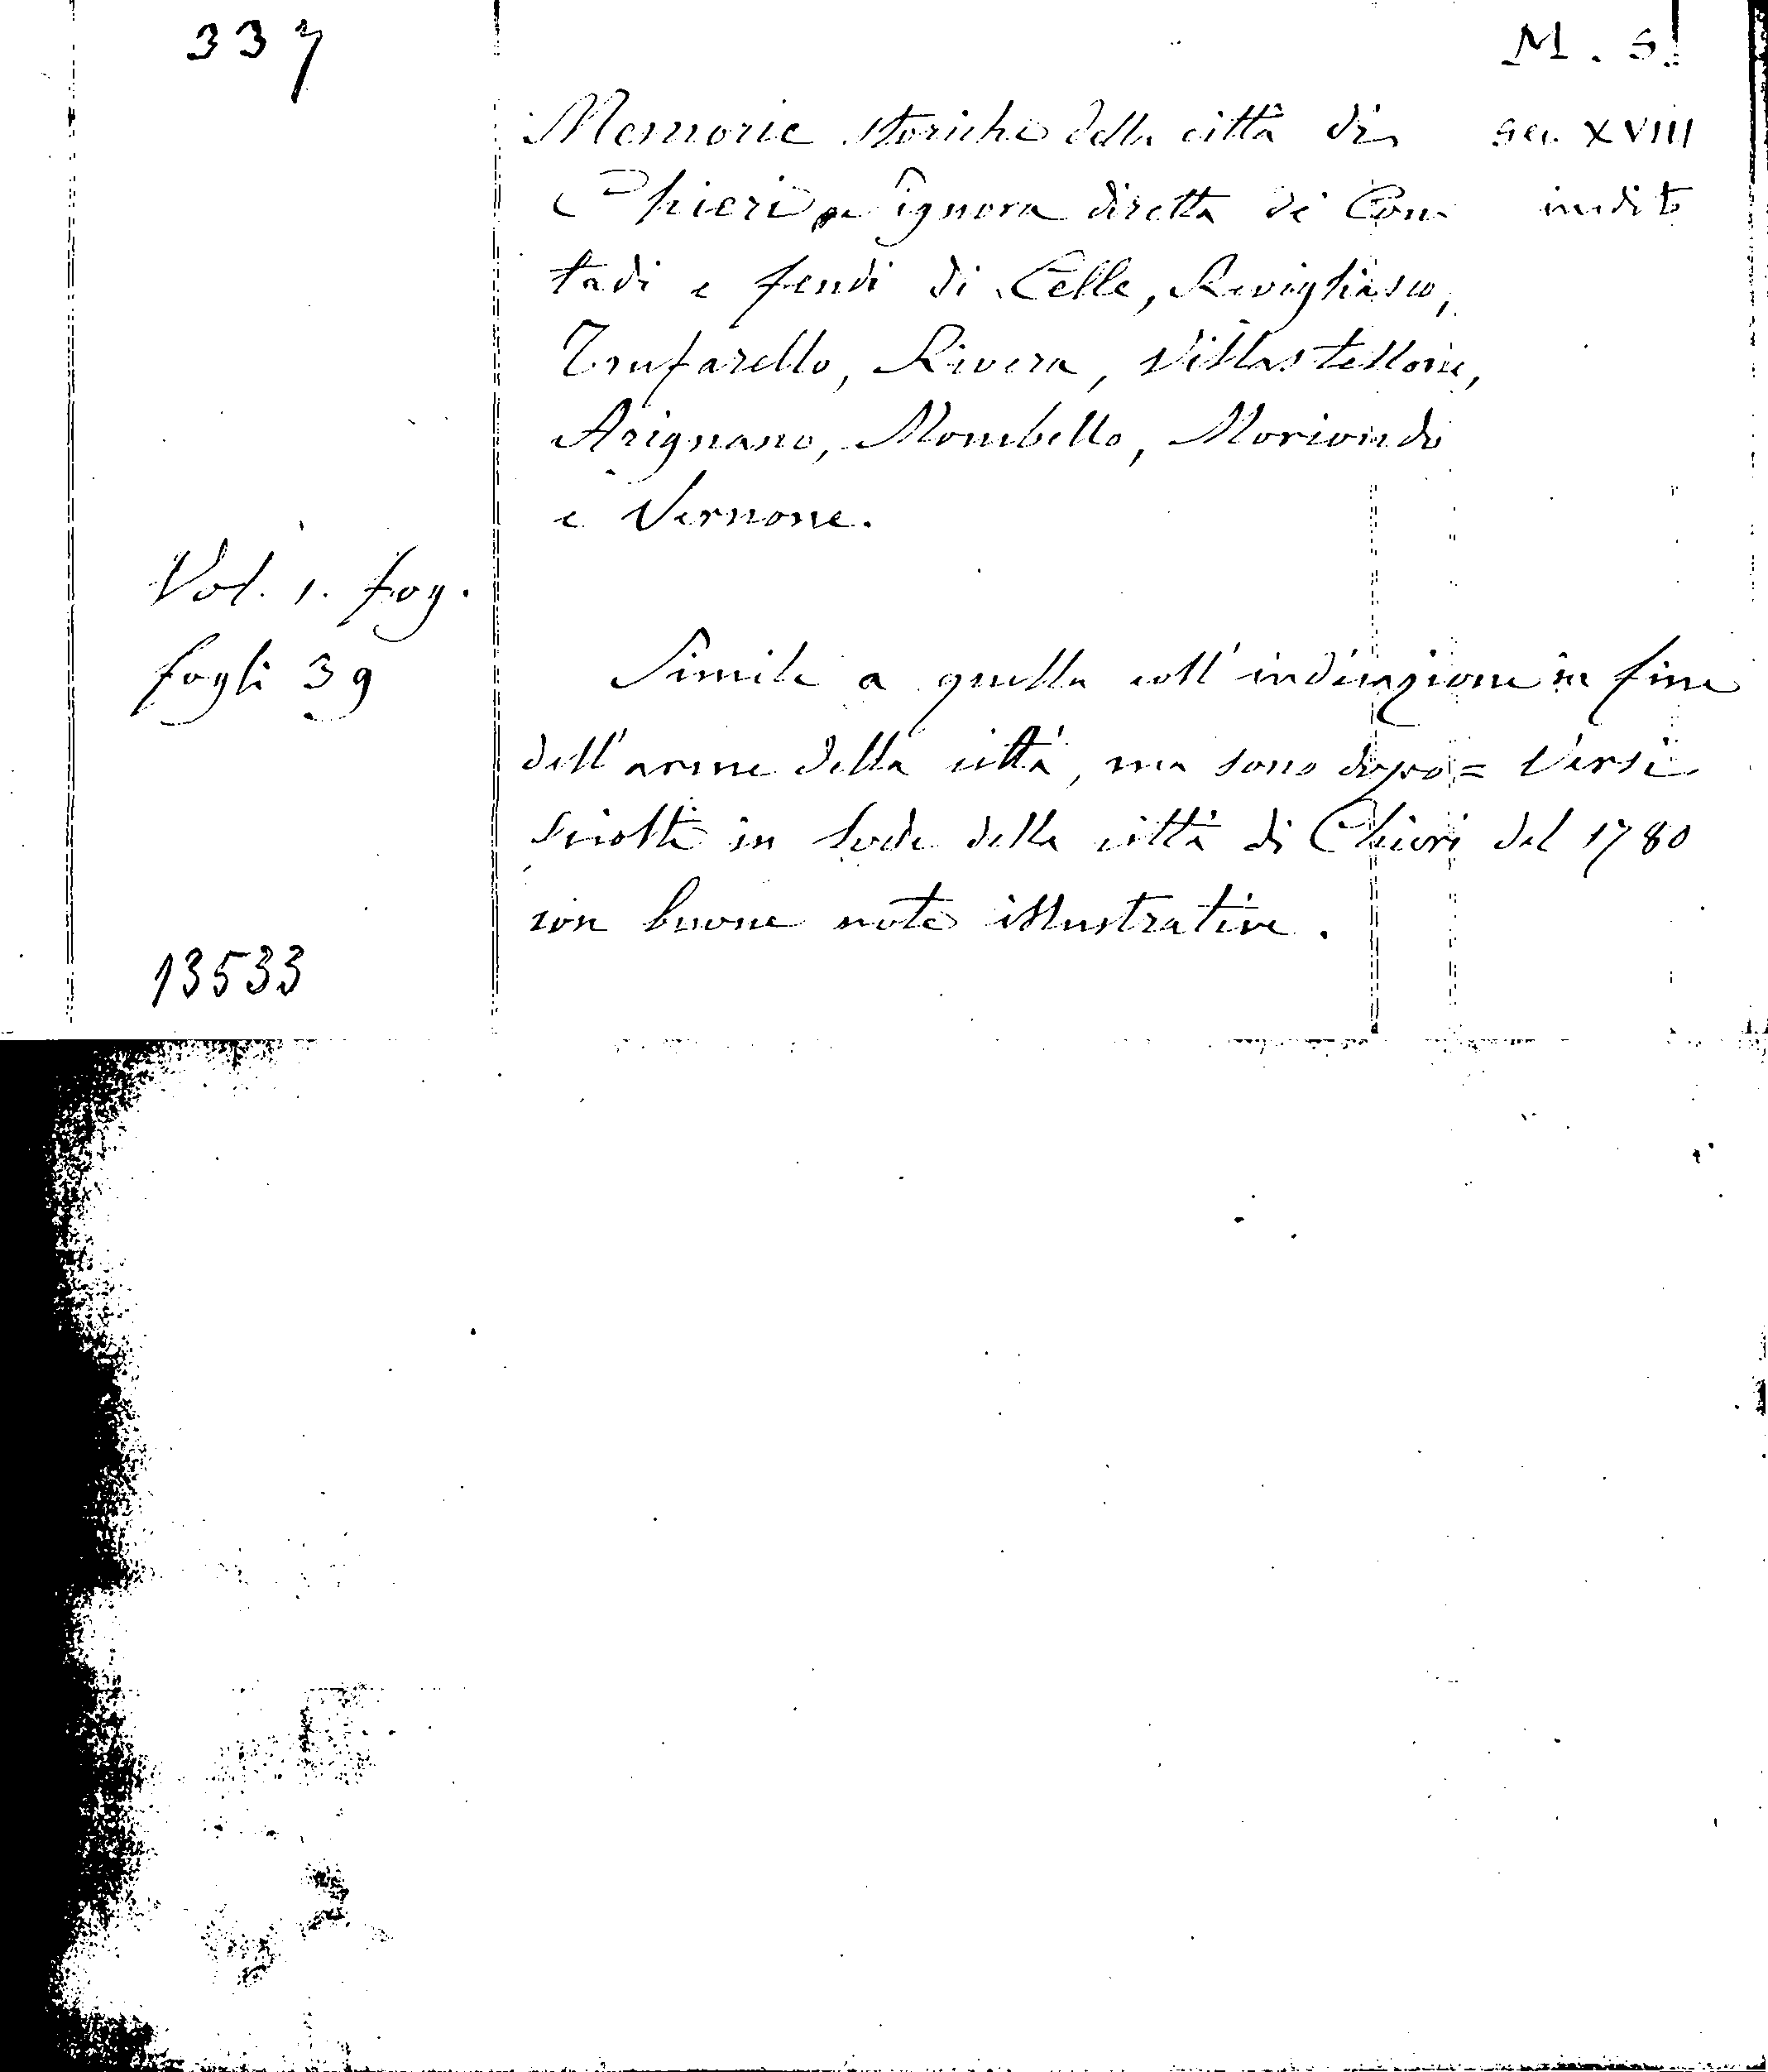 337
M. S.
Memorie storiche della città di
sec. XVIII
Chieri signora diretta de Con-
inedito
tadi e feudi di Celle, Revigliasco,
Trufarello, Rivera, Villastellone,
Arignano, Mombello, Moriondo
e Vernone.
Vol. 1. fog.
fogli 39
Simile a quella coll'indicazione in fine
dell'arme della città, ma sono dopo = Versi
sciolti in lode della città di Chieri del 1780
con buone note illustrative.
13533